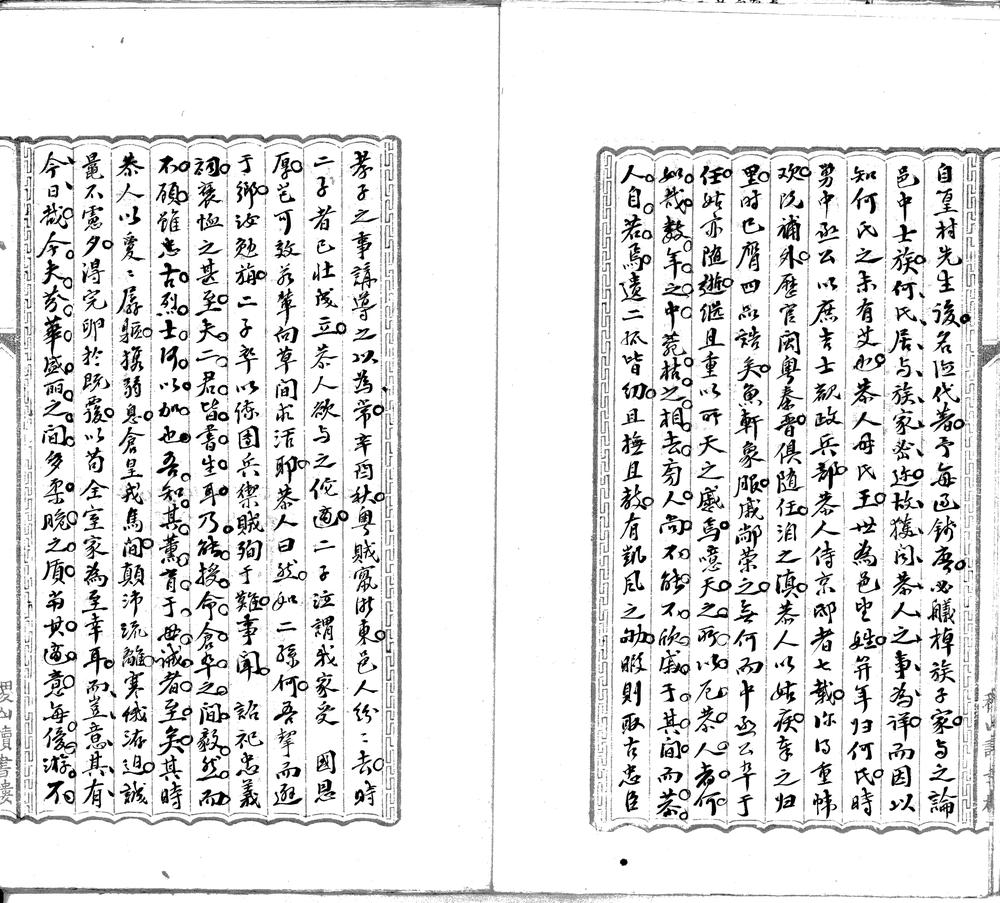 自皇村先生後名德代著予每過錢唐必艤棹族子家与之論
邑中士族何氏居与族家密迩故獲聞恭人之事為詳而因以
知何氏之未有艾也恭人母氏王世為邑望姓笄年归何氏時
舅中丞公以庶吉士觀政兵部恭人侍京邸者七載作得重幃
欢阮補外歷官閩粤秦晋俱随任洎之滇恭人以姑疾奉之归
里时已膺四品誥矣魚軒象服戚鄰荣之無何而中丞公卒于
任姑亦随逝继且重以所天之戚焉噫天之所以厄恭人者何
如哉数年之中菀枯之相去旁人尚不能不欣戚于其間而恭
人自若焉遺二孤皆幼且撫且教有凱風之劬暇則取古忠臣
孝子之事講導之以為常辛酉秋粤賊竄浙東邑人纷〻去時
二子者已壮成立恭人欲与之偕適二子泣謂我家受 國恩
厚豈可效若輩向草間求活耶恭人曰然如二孫何吾挈而逃
于鄉汝勉旃二子卒以練團兵禦賊殉于難事聞 詔祀忠義
祠褒恤之甚至夫二君皆書生耳乃能授命倉卒之間毅然而
不顧雖忠古烈士何以加也吾知其薰育于母诫者至矣其時
恭人以愛〻孱軀攜弱息倉皇戎馬間顛沛流離寒饿洊迫誠
量不憲夕得完卵於既覆以苟全室家為至幸耳而豈意其有
今日哉今夫芬華盛丽之间多柔脆之質當其適意每優游不